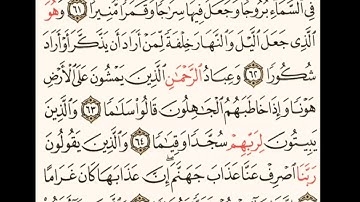 فِي ٱلسَّمَآءِ بُرُوجًا وَجَعَلَ فِيهَا سِرَٰجًا وَقَمَرًا مُّنِيرًا ٦١ وَهُوَ
ٱلَّذِي جَعَلَ ٱلَّيْلَ وَٱلنَّهَارَ خِلْفَةً لِّمَنْ أَرَادَ أَن يَذَّكَّرَ أَوْ أَرَادَ
شُكُورًا ٦٢ وَعِبَادُ ٱلرَّحْمَٰنِ ٱلَّذِينَ يَمْشُونَ عَلَى ٱلْأَرْضِ
هَوْنًا وَإِذَا خَاطَبَهُمُ ٱلْجَٰهِلُونَ قَالُوا۟ سَلَٰمًا ٦٣ وَٱلَّذِينَ
يَبِيتُونَ لِرَبِّهِمْ سُجَّدًا وَقِيَٰمًا ٦٤ وَٱلَّذِينَ يَقُولُونَ
رَبَّنَا ٱصْرِفْ عَنَّا عَذَابَ جَهَنَّمَ ۖ إِنَّ عَذَابَهَا كَانَ غَرَامًا